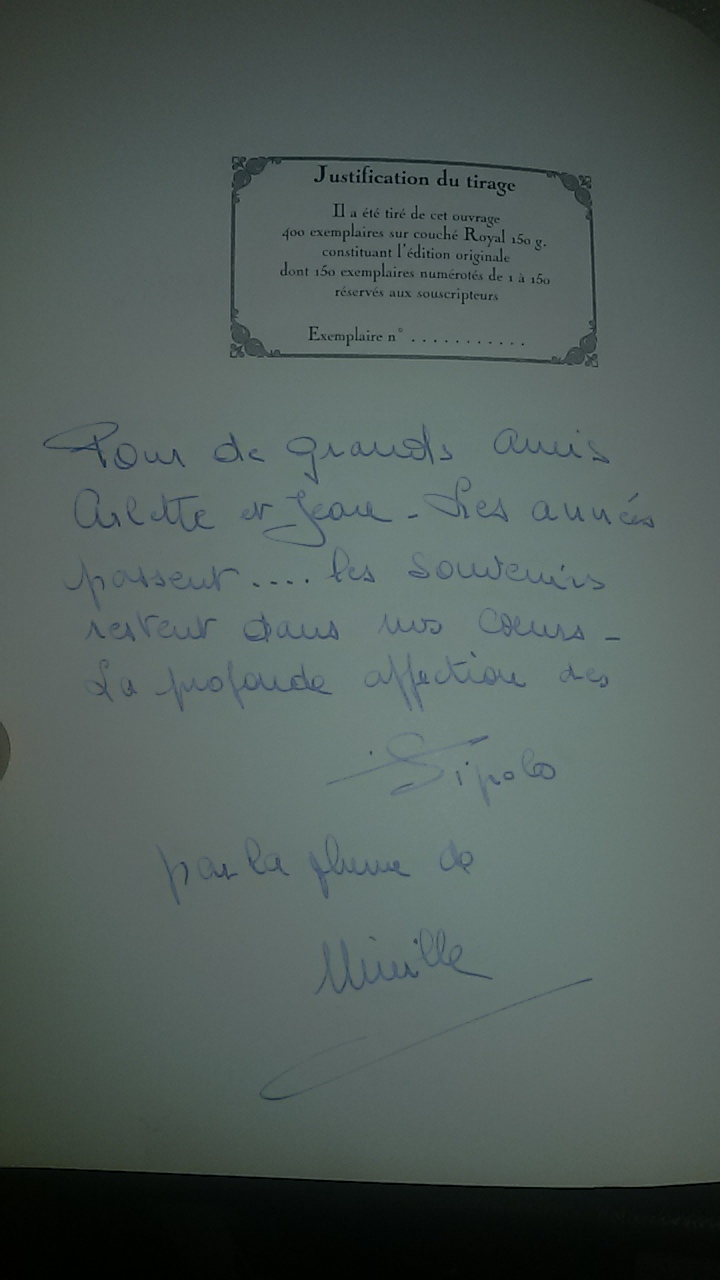 Justification du tirage
Il a été tiré de cet ouvrage
400 exemplaires sur couché Royal 150 g.
constituant l'édition originale
dont 150 exemplaires numérotés de 1 à 150
réservés aux souscripteurs
Exemplaire n° ...........
Pour de grands amis
Arlette et Jean - Les années
passent .... les souvenirs
restent dans nos coeurs -
La profonde affection des
Sipolo
par la plume de
Mireille